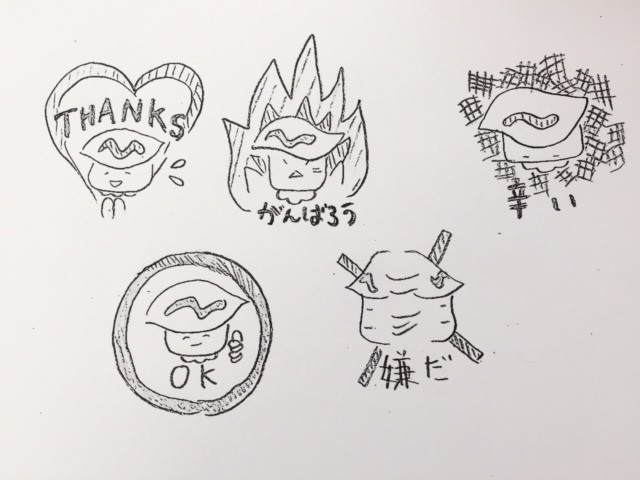 THANKS
がんばろう
辛い
OK
嫌だ